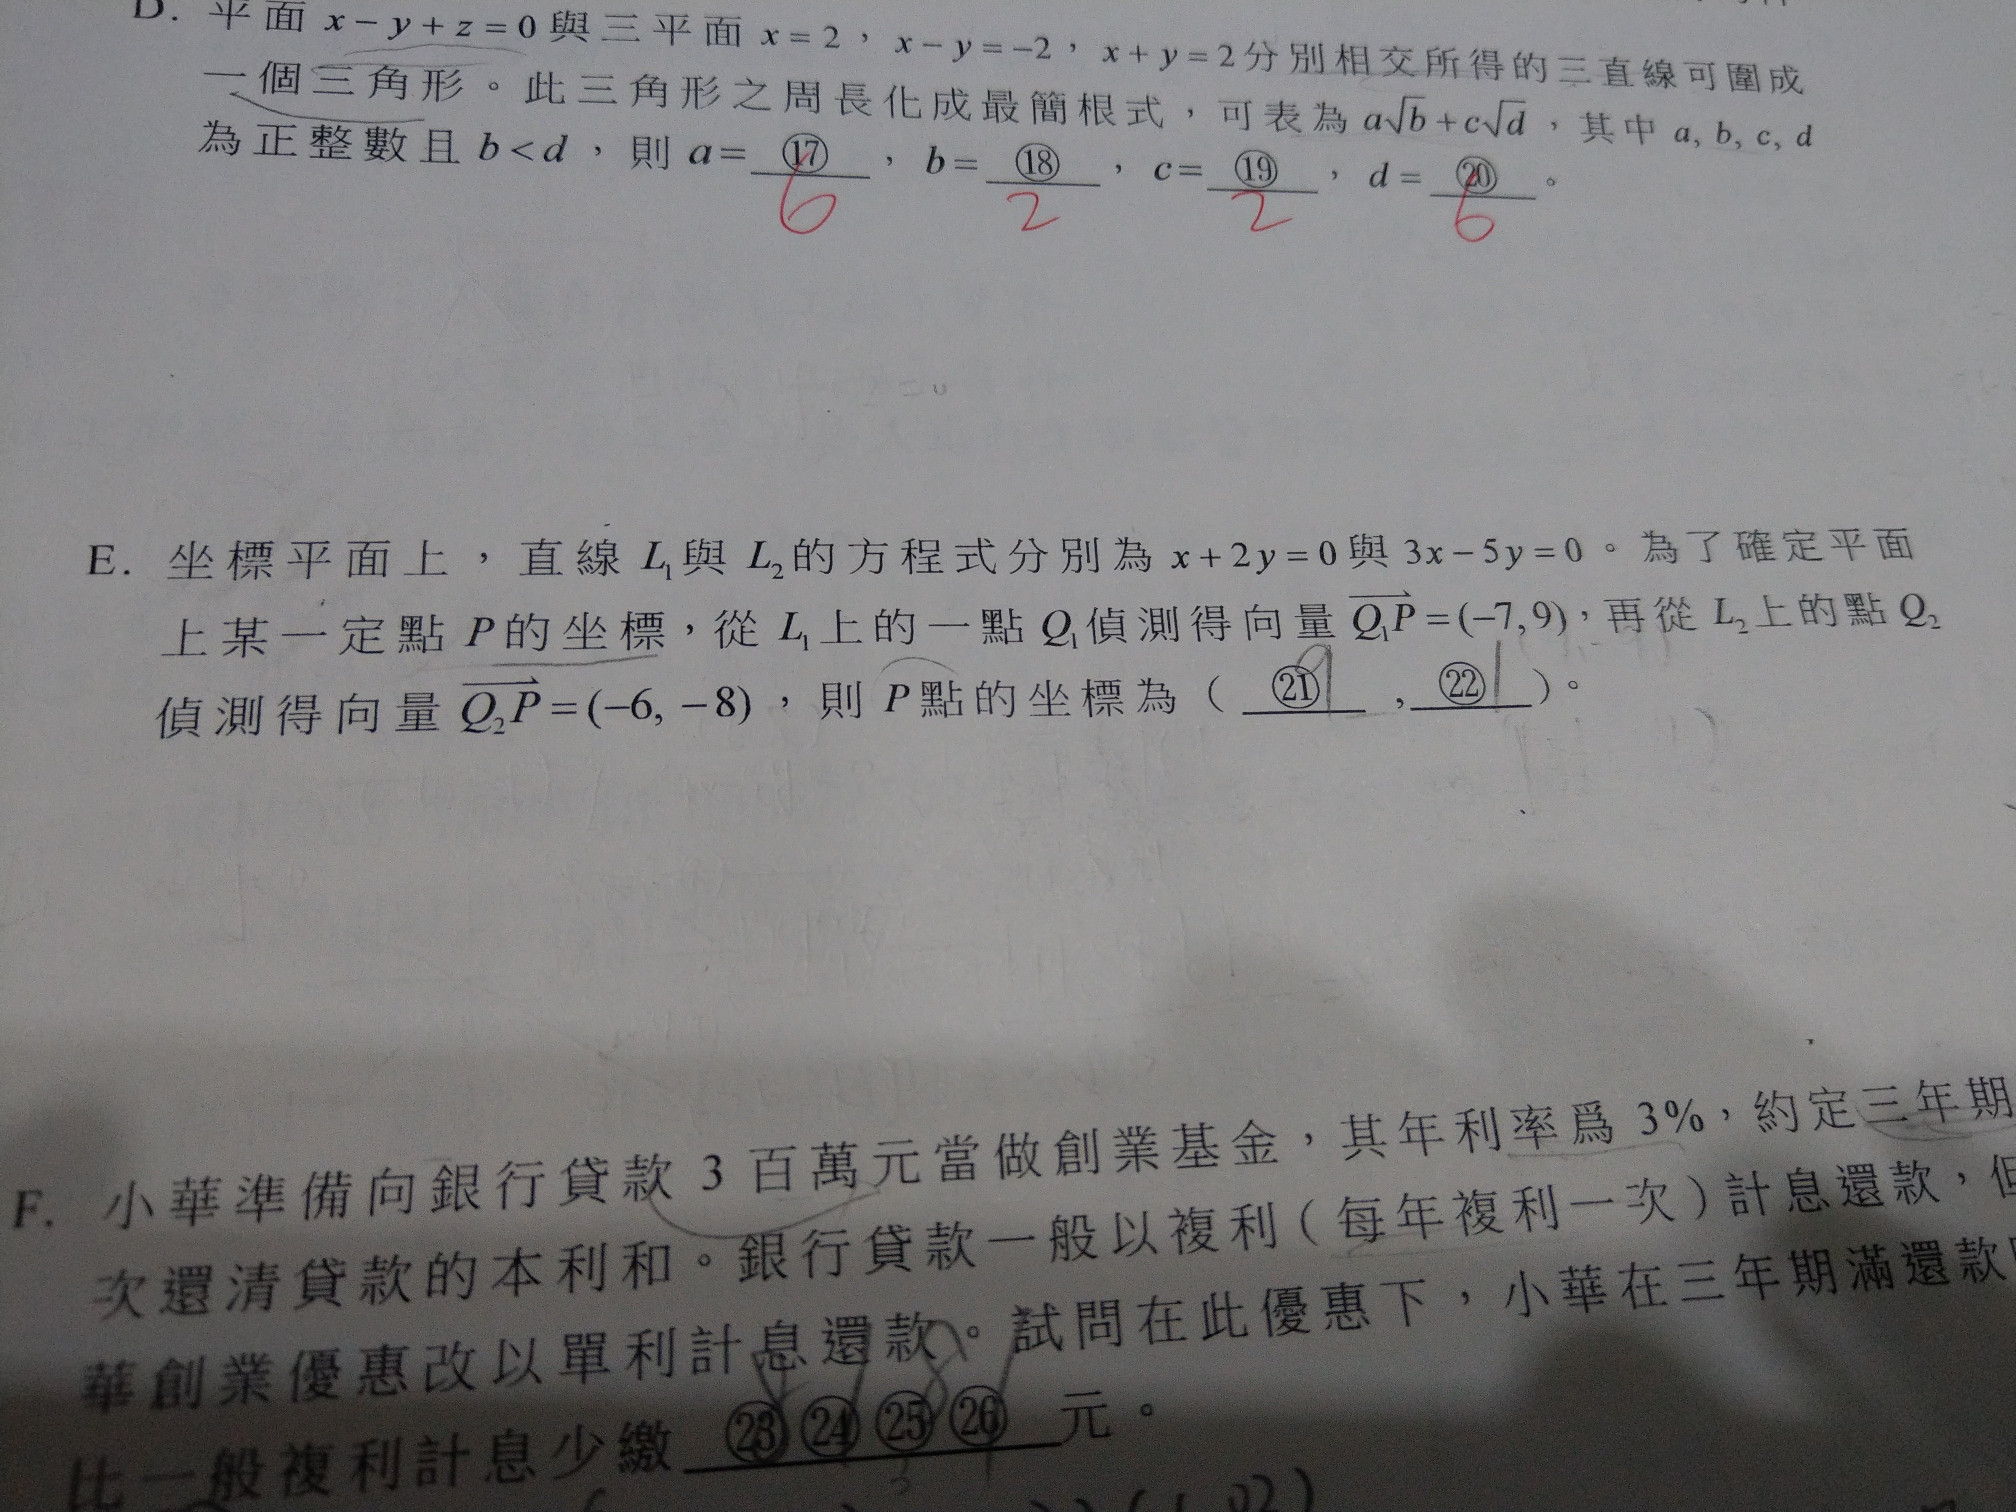 D. 平面 x－y＋z＝0與三平面 x＝2，x－y＝－2，x＋y＝2分別相交所得的三直線可圍成
一個三角形。此三角形之周長化成最簡根式，可表為 a√b＋c√d，其中 a, b, c, d
為正整數且 b＜d，則 a＝ ⑰ ，b＝ ⑱ ，c＝ ⑲ ，d＝ ⑳ 。
6 2 2 6
E. 坐標平面上，直線 L₁與 L₂的方程式分別為 x＋2y＝0與 3x－5y＝0。為了確定平面
上某一定點 P的坐標，從 L₁上的一點 Q₁偵測得向量 Q₁P＝(－7,9)，再從 L₂上的點 Q₂
偵測得向量 Q₂P＝(－6, －8)，則 P點的坐標為（ ㉑ , ㉒ ）。
9 1
F. 小華準備向銀行貸款 3 百萬元當做創業基金，其年利率爲 3%，約定三年期
次還清貸款的本利和。銀行貸款一般以複利（每年複利一次）計息還款，但
華創業優惠改以單利計息還款。試問在此優惠下，小華在三年期滿還款
比一般複利計息少繳 ㉓㉔㉕㉖ 元。